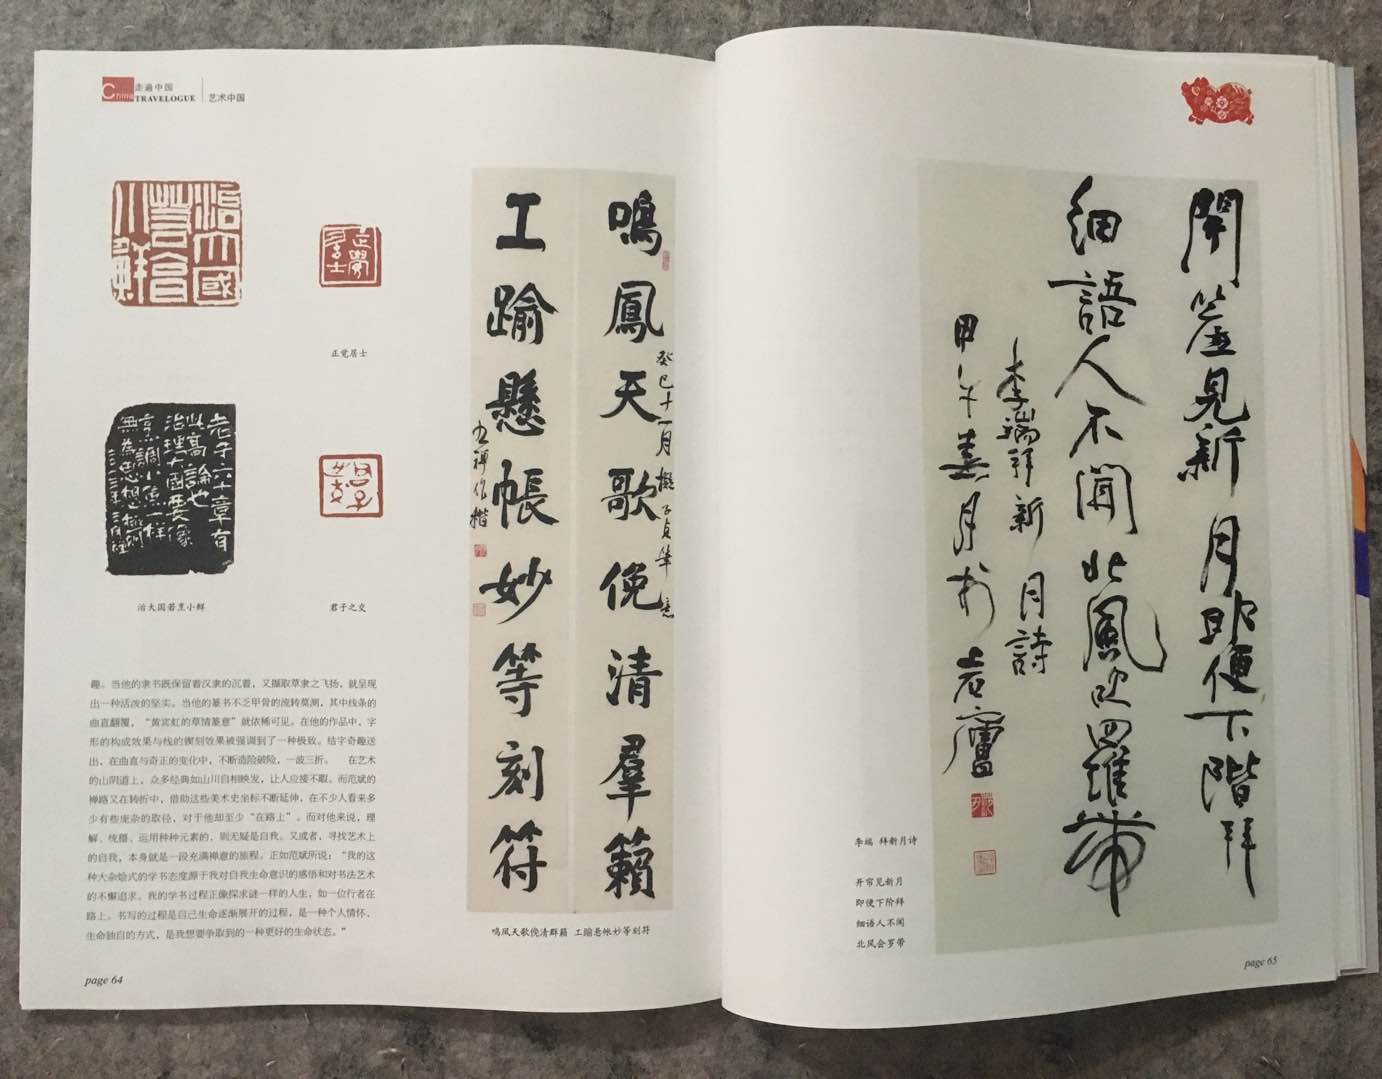 China
走遍中国
TRAVELOGUE
艺术中国
治大國
若亯
小鮮
正覺
居士
正觉居士
老子六十章有
此高論也
治理大國要像
烹調小魚一樣
無為思想
治大国若烹小鲜
君子
之交
君子之交
趣。当他的隶书既保留着汉隶的沉着，又撷取草隶之飞扬，就呈现
出一种活泼的坚实。当他的篆书不乏甲骨的流转莫测，其中线条的
曲直翻覆，“黄宾虹的草情篆意”就依稀可见。在他的作品中，字
形的构成效果与线的锲刻效果被强调到了一种极致。结字奇趣迭
出，在曲直与奇正的变化中，不断造险破险，一波三折。 在艺术
的山阴道上，众多经典如山川自相映发，让人应接不暇。而范斌的
禅路又在转折中，借助这些美术史坐标不断延伸，在不少人看来多
少有些庞杂的取径，对于他却至少“在路上”。而对他来说，理
解、统摄、运用种种元素的，则无疑是自我。又或者，寻找艺术上
的自我，本身就是一段充满禅意的旅程。正如范斌所说：“我的这
种大杂烩式的学书态度源于我对自我生命意识的感悟和对书法艺术
的不懈追求。我的学书过程正像探求谜一样的人生，如一位行者在
路上。书写的过程是自己生命逐渐展开的过程，是一种个人情怀、
生命独白的方式，是我想要争取到的一种更好的生命状态。”
page 64
鳴鳳天歌俛清羣籟
癸巳十一月擬子貞筆意
工踰懸帳妙等刻符
九禪作楷
鸣凤天歌俛清群籁 工踰悬帐妙等刻符
開簾見新月即便下階拜
細語人不聞北風吹羅帶
李端拜新月詩
甲午春月於
李端 拜新月诗
开帘见新月
即便下阶拜
细语人不闻
北风会罗带
page 65